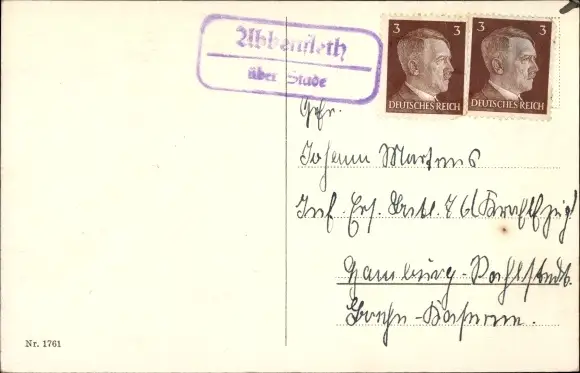 Abbenfleth
über Stade
3 3
DEUTSCHES REICH
3 3
DEUTSCHES REICH
Gefr.
Johann Martens
Inf. Ers. Batl. 76 (Kraftfzg)
Hamburg-Rahlstedt.
Boehn-Kaserne.
Nr. 1761